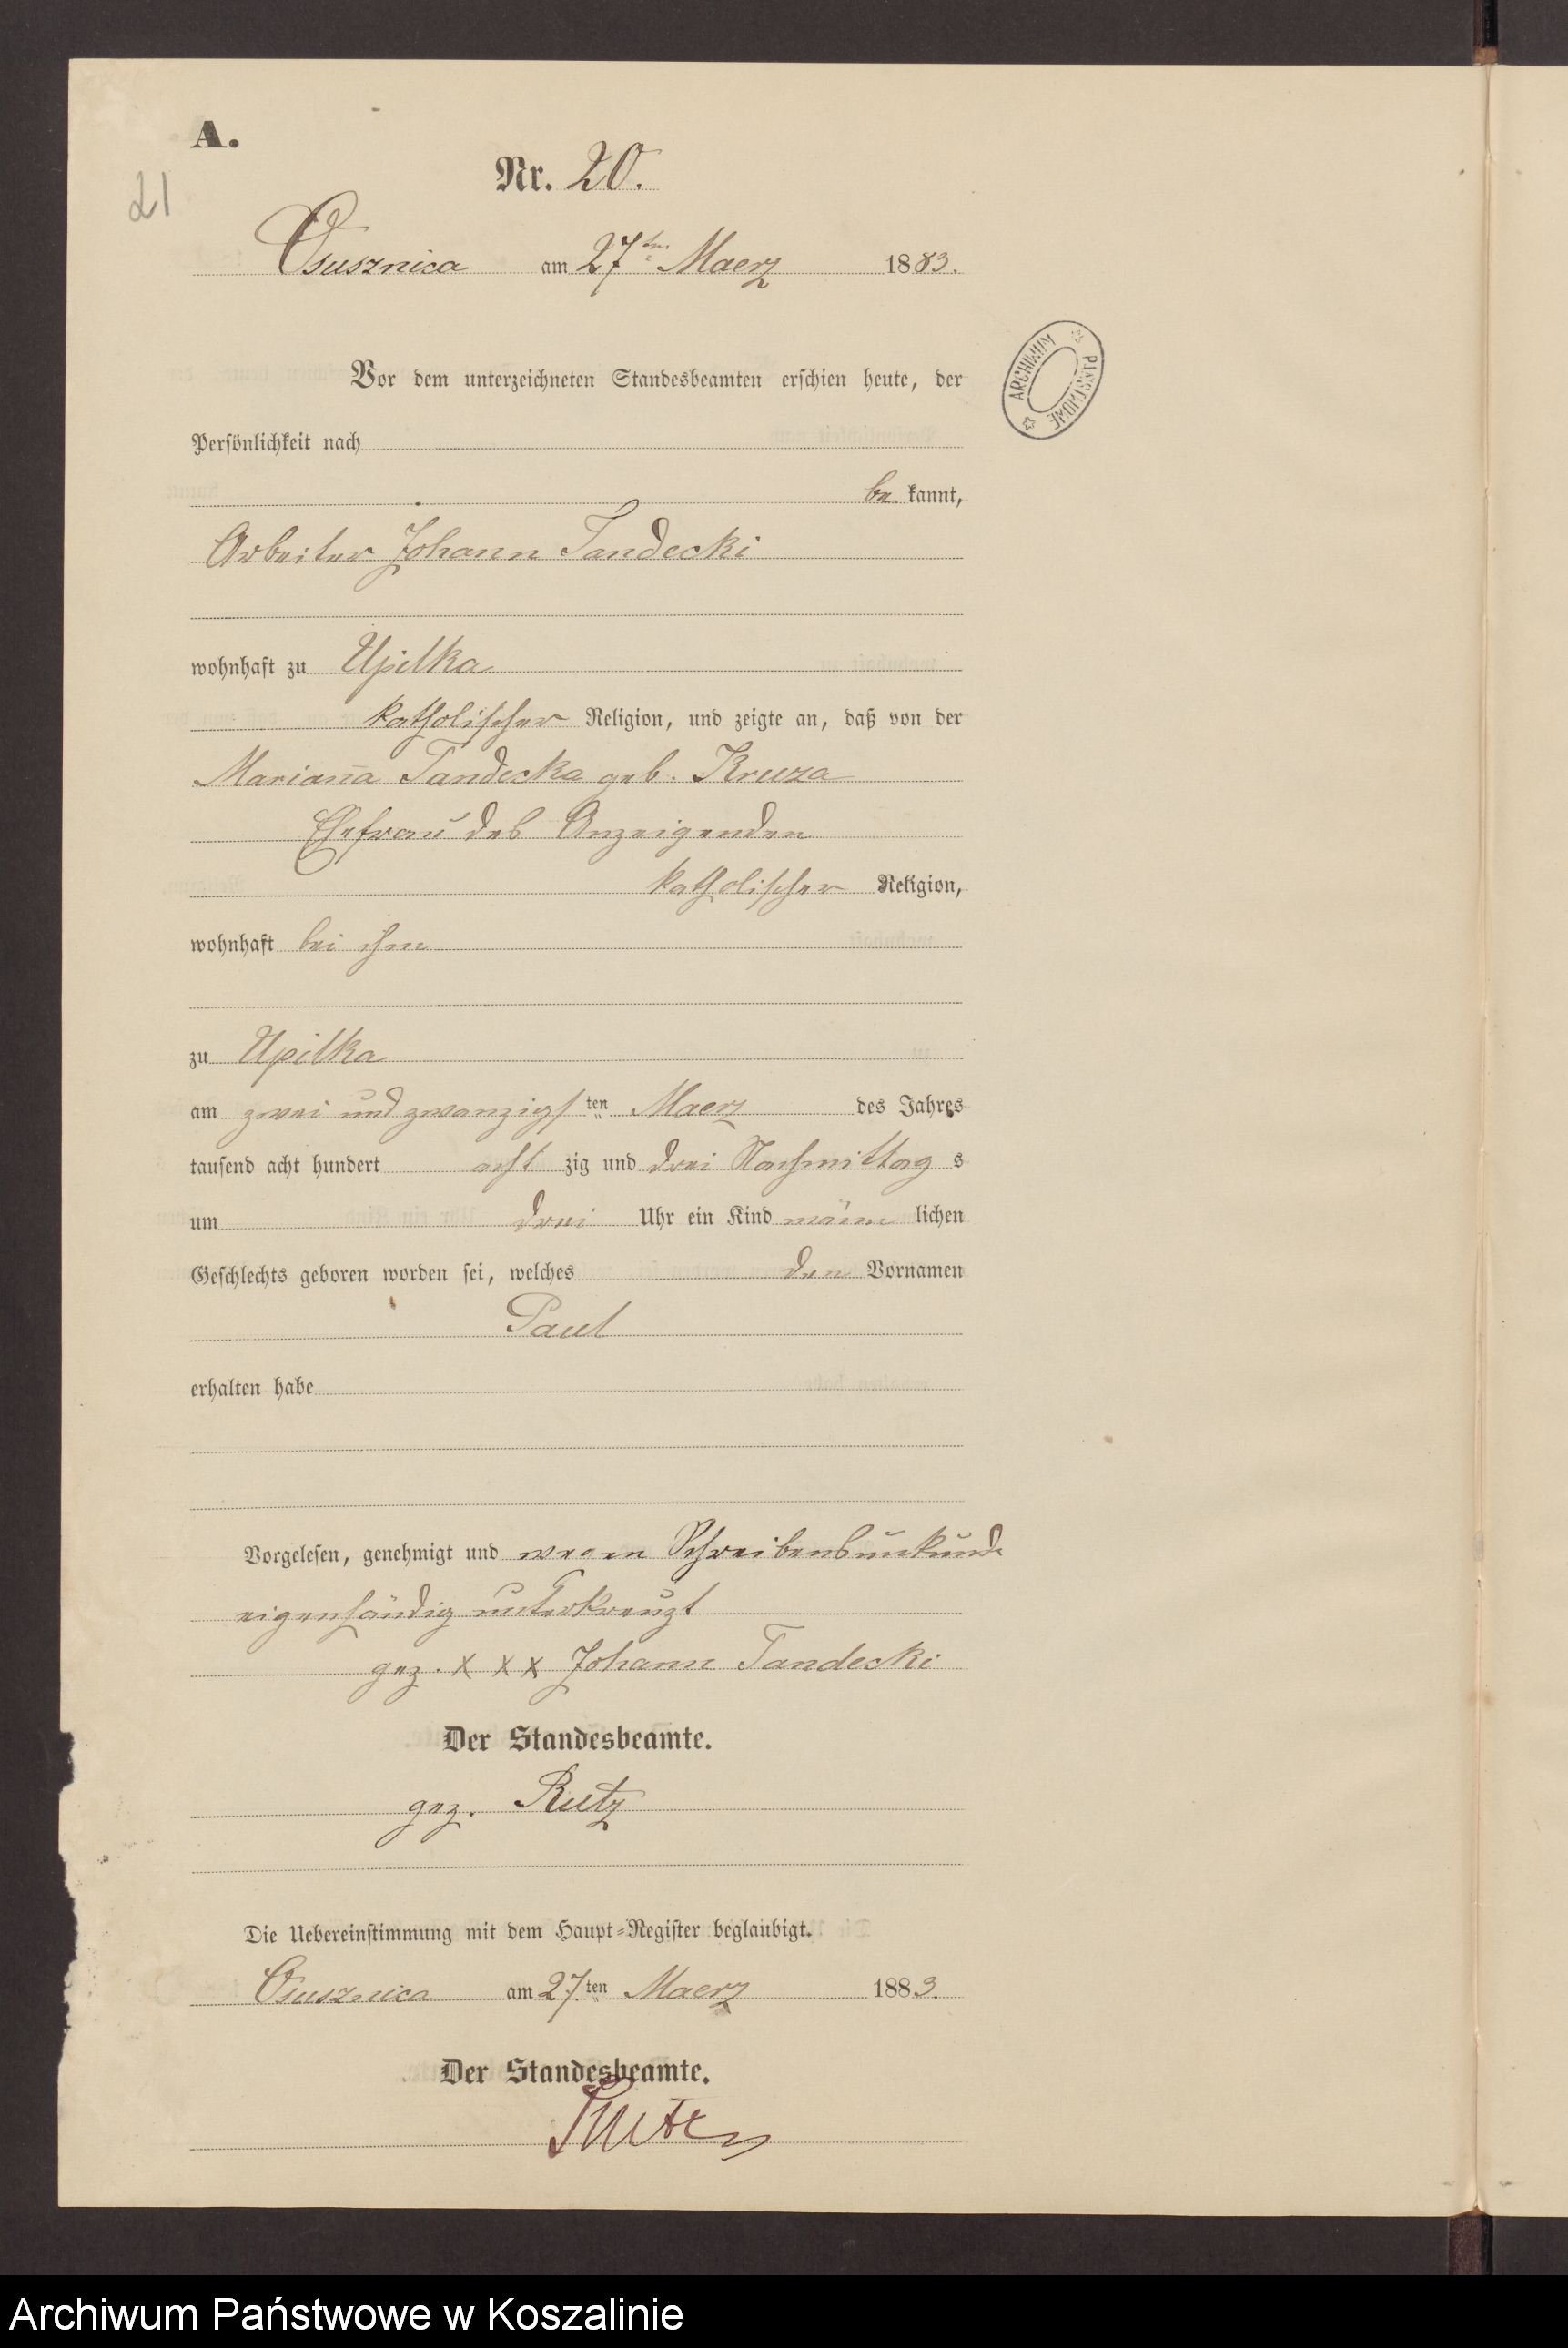 A.
21
Nr. 20.
Osusznica am 27ten Maerz 1883.
ARCHIWUM PAŃSTWOWE
Vor dem unterzeichneten Standesbeamten erschien heute, der
Persönlichkeit nach
be kannt,
Arbeiter Johann Tandecki
wohnhaft zu Upilka
katholischer Religion, und zeigte an, daß von der
Marianna Tandecka geb. Kruza
Ehefrau des Anzeigenden
katholischer Religion,
wohnhaft bei ihm
zu Upilka
am zwei und zwanzigsten Maerz des Jahres
tausend acht hundert acht zig und drei Nachmittag s
um drei Uhr ein Kind männ lichen
Geschlechts geboren worden sei, welches den Vornamen
Paul
erhalten habe
Vorgelesen, genehmigt und wegen Schreibensunkunde
eigenhändig unterkreuzt
gez. x x x Johann Tandecki
Der Standesbeamte.
gez. Rutz
Die Uebereinstimmung mit dem Haupt-Register beglaubigt.
Osusznica am 27.ten Maerz 1883.
Der Standesbeamte.
Rutz
Archiwum Państwowe w Koszalinie